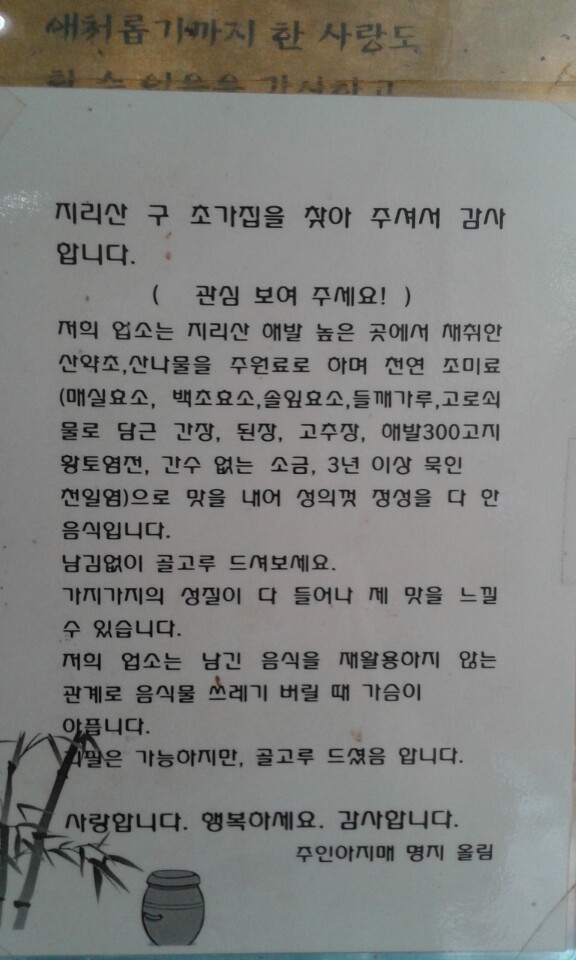 애처롭기까지 한 사랑도
할 수 있음을 감사하고
지리산 구 초가집을 찾아 주셔서 감사
합니다.
( 관심 보여 주세요! )
저의 업소는 지리산 해발 높은 곳에서 채취한
산약초,산나물을 주원료로 하며 천연 조미료
(매실효소, 백초효소,솔잎효소,들깨가루,고로쇠
물로 담근 간장, 된장, 고추장, 해발300고지
황토염전, 간수 없는 소금, 3년 이상 묵인
천일염)으로 맛을 내어 성의껏 정성을 다 한
음식입니다.
남김없이 골고루 드셔보세요.
가지가지의 성질이 다 들어나 제 맛을 느낄
수 있습니다.
저의 업소는 남긴 음식을 재활용하지 않는
관계로 음식물 쓰레기 버릴 때 가슴이
아픕니다.
리필은 가능하지만, 골고루 드셨음 합니다.
사랑합니다. 행복하세요. 감사합니다.
주인아지매 명지 올림